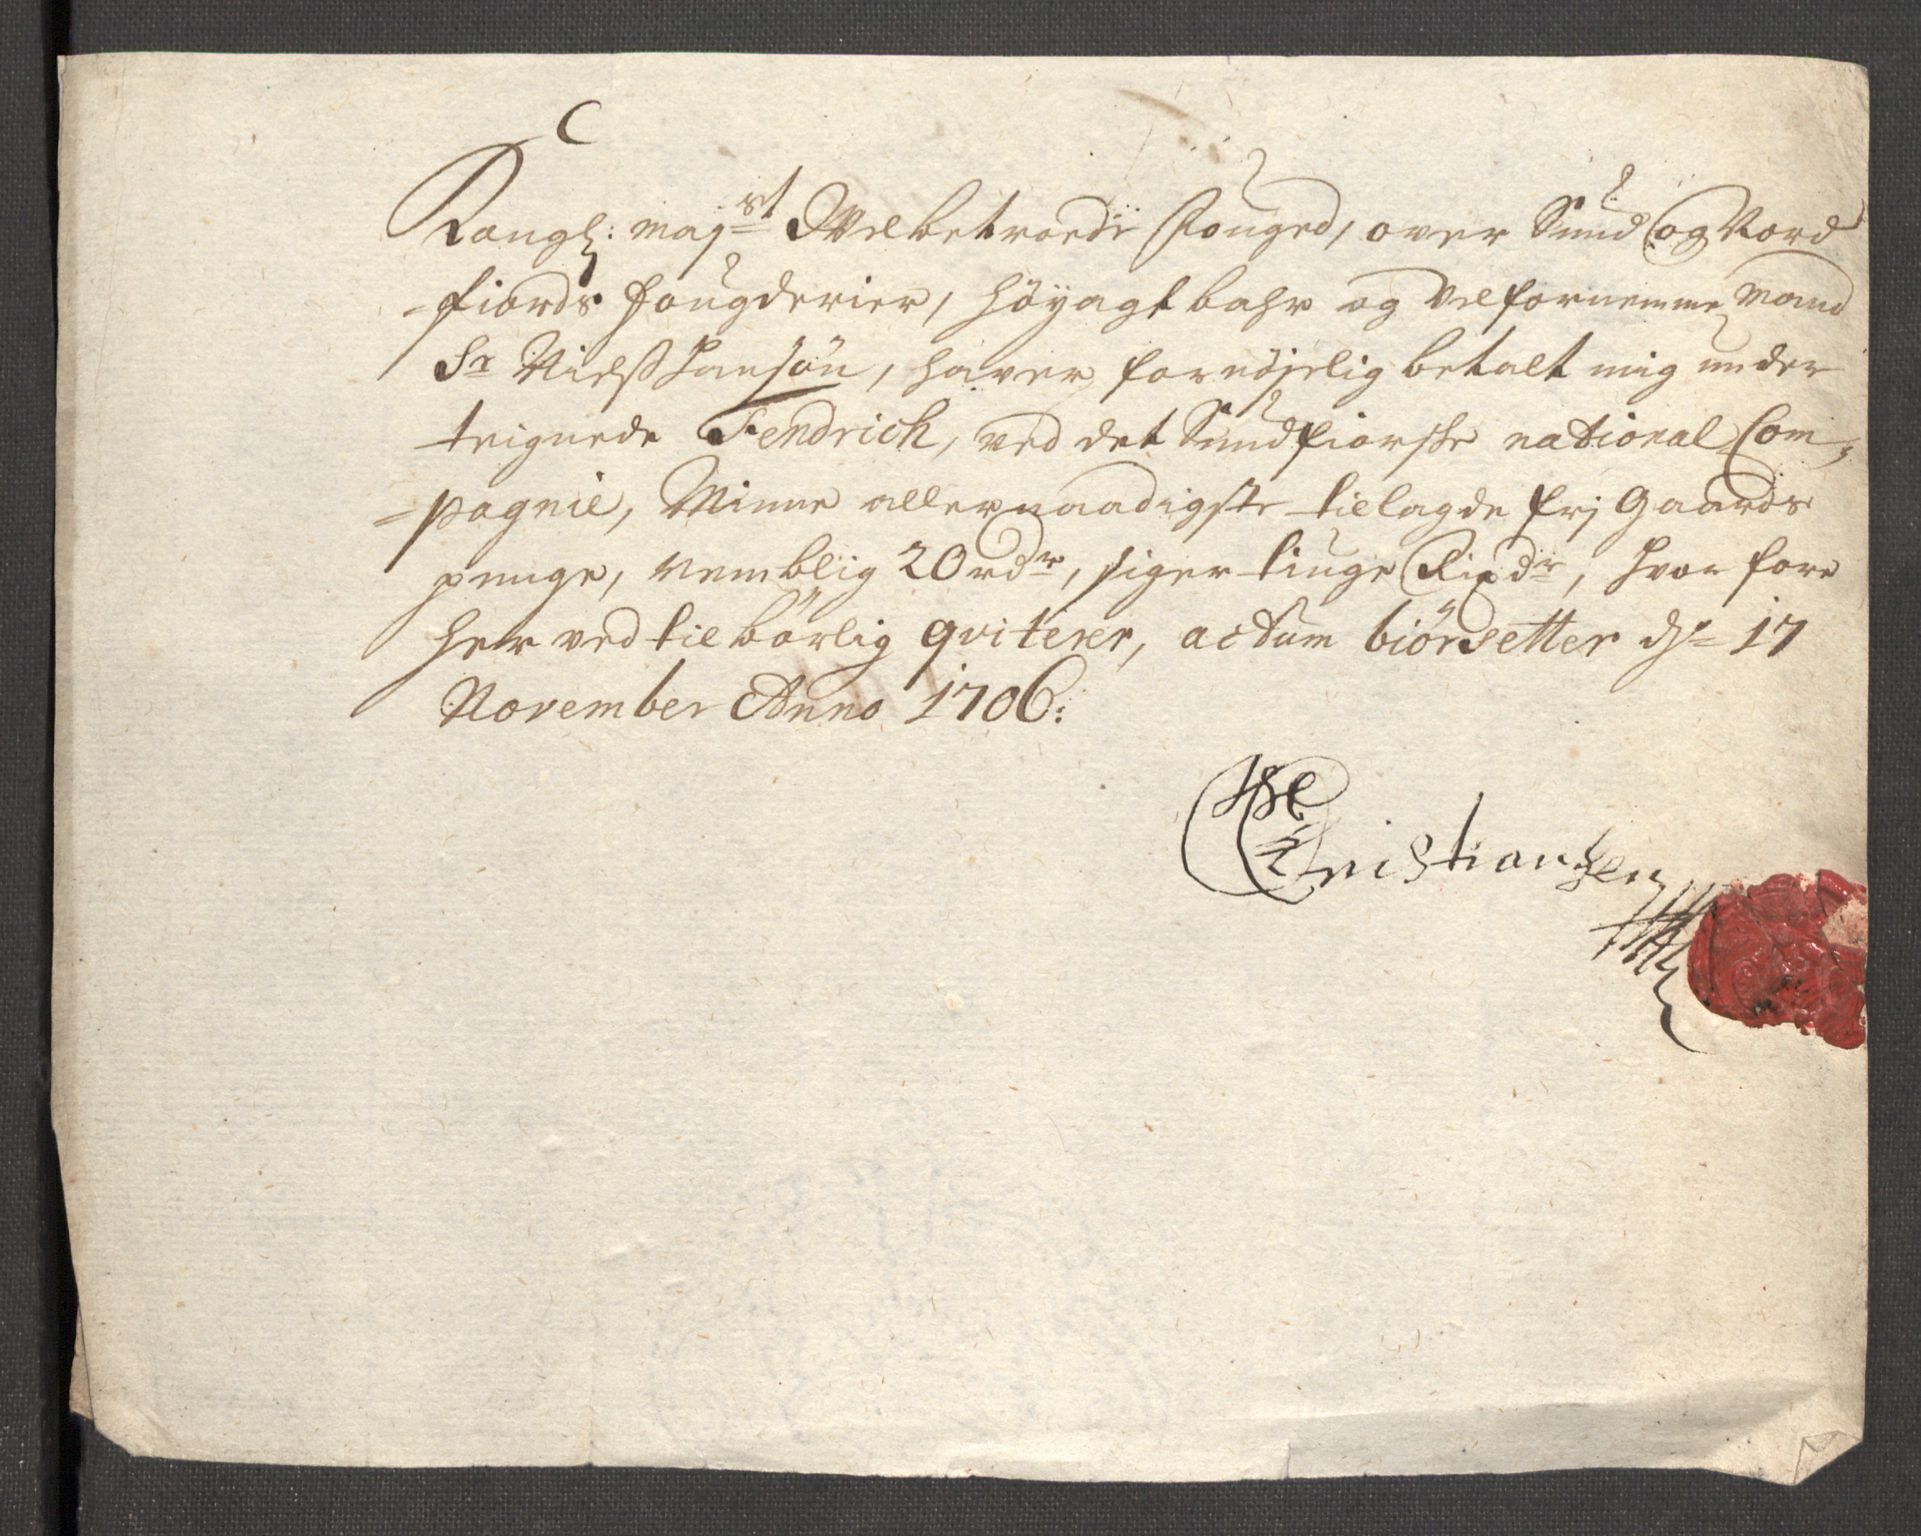 C
Kongl: maj:st Welbetroede Fouged, over Sund og Nord
-fiords fougderier, höyagtbahr og velfornemme Mand
Sr Nielß Hansön, haver fornöjelig betalt mig under
tegnede Fendrich, ved det Sundfiorske national Com-
-pagnie, Minne allernaadigste tillagde frj Gaards
penge, nemblig 20 rdr, siger tiuge Rixdr, hvor fore
her ved tilbörlig qviterer, actum biörsetter d. 17
November Anno 1706:
Christiansen